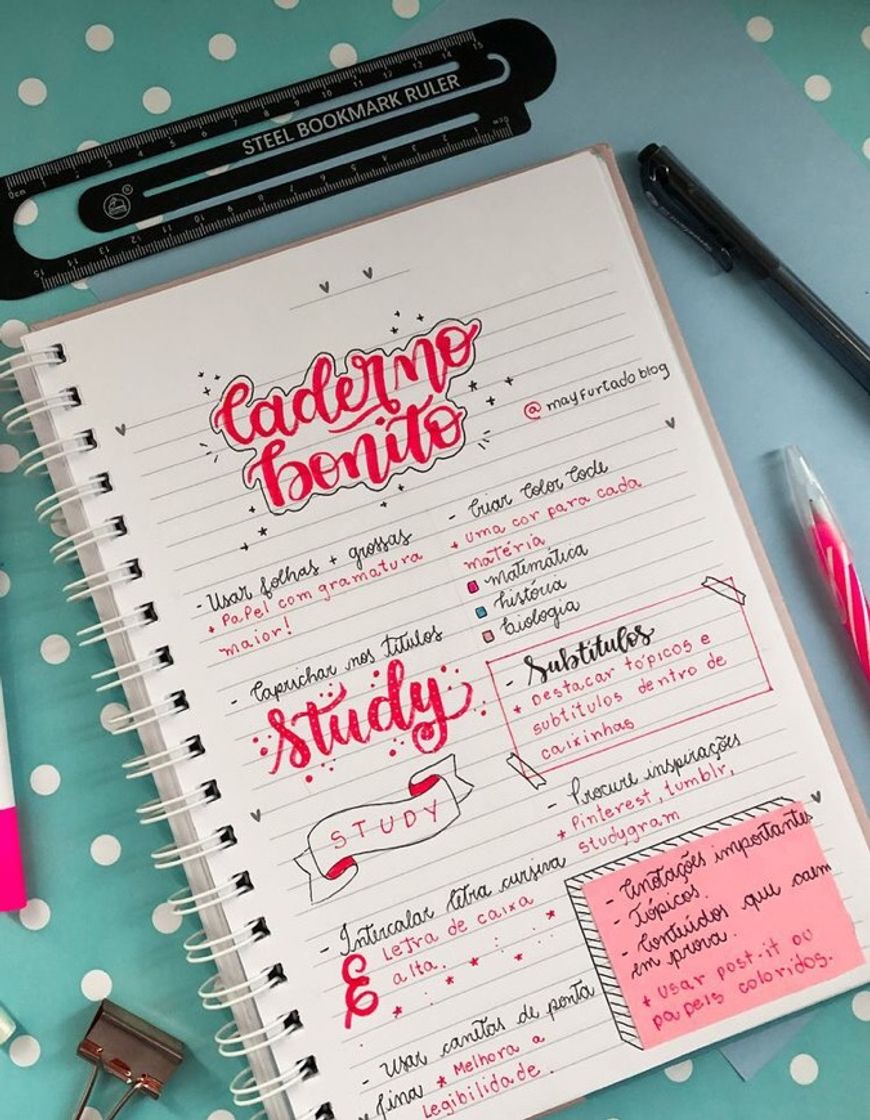 STEEL BOOKMARK RULER
Caderno
bonito
@mayfurtadoblog
- Usar folhas + grossas
+ Papel com gramatura
maior!
- Caprichar nos títulos
Study
STUDY
- Intercalar letra cursiva
E Letra de caixa
alta.
- Usar canetas de ponta
fina * Melhora a
Legibilidade.
- Criar Color Code
+ uma cor para cada
matéria
matemática
história
biologia
- Subtítulos
* Destacar tópicos e
subtítulos dentro de
caixinhas
- Procure inspirações
* Pinterest, tumblr,
studygram
- Anotações importantes
- Tópicos.
- Conteúdos que caem
em prova.
+ usar post-it ou
papeis coloridos.